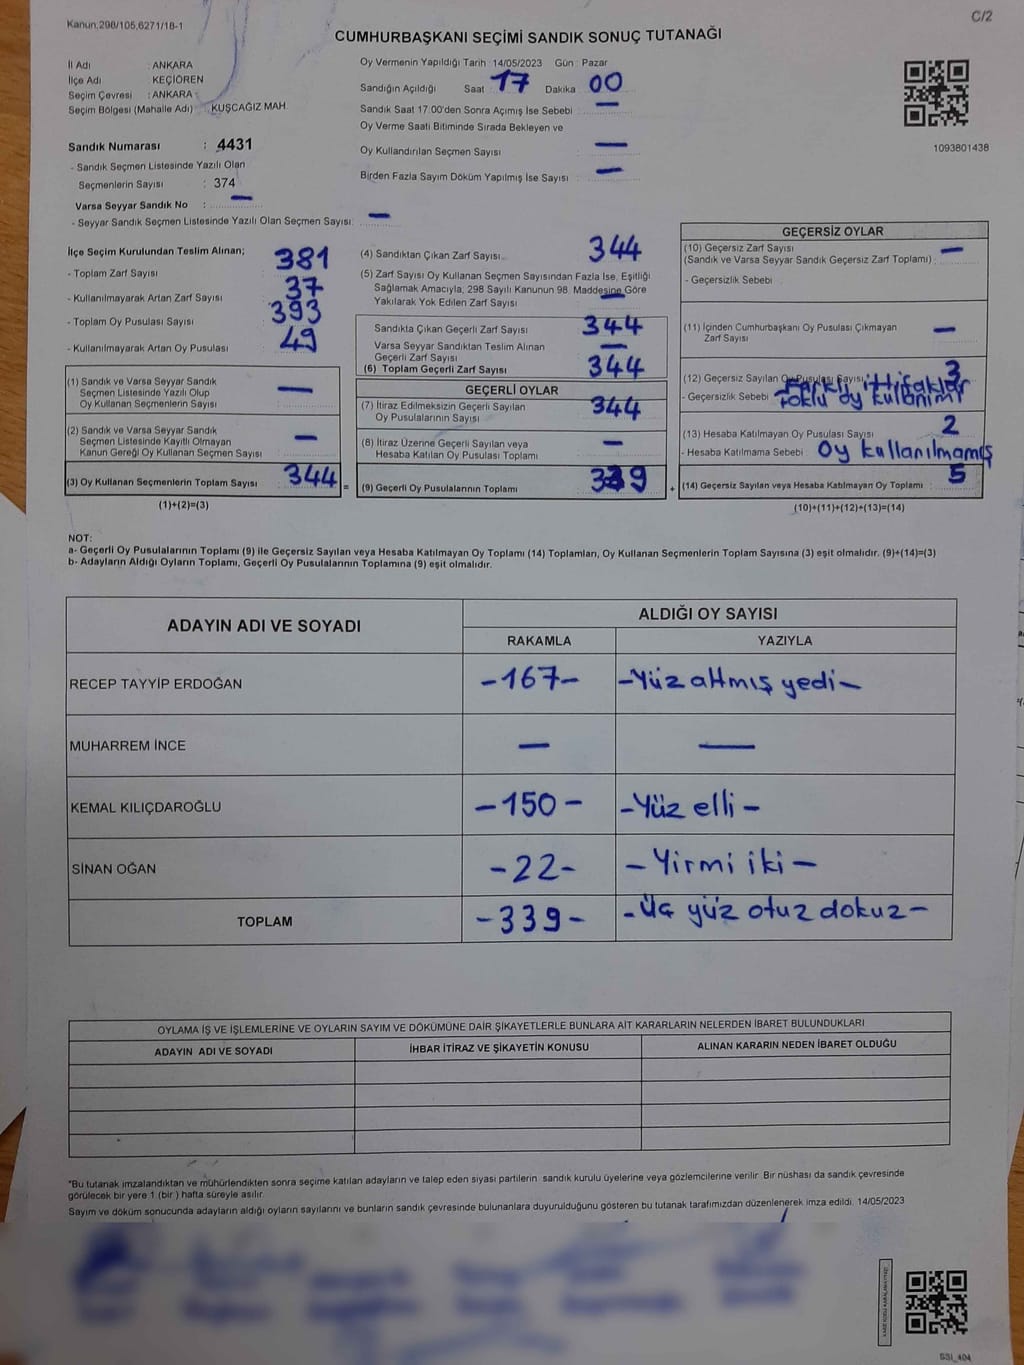 Kanun:298/105,6271/18-1
C/2
CUMHURBAŞKANI SEÇİMİ SANDIK SONUÇ TUTANAĞI
İl Adı : ANKARA
İlçe Adı : KEÇİÖREN
Seçim Çevresi : ANKARA
Seçim Bölgesi (Mahalle Adı) : KUŞCAĞIZ MAH.
Sandık Numarası : 4431
- Sandık Seçmen Listesinde Yazılı Olan
Seçmenlerin Sayısı : 374
Varsa Seyyar Sandık No : —
- Seyyar Sandık Seçmen Listesinde Yazılı Olan Seçmen Sayısı: —
Oy Vermenin Yapıldığı Tarih : 14/05/2023 Gün : Pazar
Sandığın Açıldığı Saat : 17 Dakika : 00
Sandık Saat 17:00'den Sonra Açımış İse Sebebi : —
Oy Verme Saati Bitiminde Sırada Bekleyen ve
Oy Kullandırılan Seçmen Sayısı : —
Birden Fazla Sayım Döküm Yapılmış İse Sayısı : —
1093801438
İlçe Seçim Kurulundan Teslim Alınan;
- Toplam Zarf Sayısı : 381
- Kullanılmayarak Artan Zarf Sayısı : 37
- Toplam Oy Pusulası Sayısı : 393
- Kullanılmayarak Artan Oy Pusulası : 49
(1) Sandık ve Varsa Seyyar Sandık
Seçmen Listesinde Yazılı Olup
Oy Kullanan Seçmenlerin Sayısı —
(2) Sandık ve Varsa Seyyar Sandık
Seçmen Listesinde Kayıtlı Olmayan
Kanun Gereği Oy Kullanan Seçmen Sayısı —
(3) Oy Kullanan Seçmenlerin Toplam Sayısı 344 =
(1)+(2)=(3)
(4) Sandıktan Çıkan Zarf Sayısı 344
(5) Zarf Sayısı Oy Kullanan Seçmen Sayısından Fazla İse, Eşitliği
Sağlamak Amacıyla, 298 Sayılı Kanunun 98. Maddesine Göre
Yakılarak Yok Edilen Zarf Sayısı —
Sandıkta Çıkan Geçerli Zarf Sayısı 344
Varsa Seyyar Sandıktan Teslim Alınan
Geçerli Zarf Sayısı —
(6) Toplam Geçerli Zarf Sayısı 344
GEÇERLİ OYLAR
(7) İtiraz Edilmeksizin Geçerli Sayılan
Oy Pusulalarının Sayısı 344
(8) İtiraz Üzerine Geçerli Sayılan veya
Hesaba Katılan Oy Pusulası Toplamı —
(9) Geçerli Oy Pusulalarının Toplamı 339 +
GEÇERSİZ OYLAR
(10) Geçersiz Zarf Sayısı
(Sandık ve Varsa Seyyar Sandık Geçersiz Zarf Toplamı) : —
- Geçersizlik Sebebi :
(11) İçinden Cumhurbaşkanı Oy Pusulası Çıkmayan
Zarf Sayısı —
(12) Geçersiz Sayılan Oy Pusulası Sayısı : 3
- Geçersizlik Sebebi : Farklı ittifaklar
oy kullanımı
(13) Hesaba Katılmayan Oy Pusulası Sayısı : 2
- Hesaba Katılmama Sebebi : Oy kullanılmamış
(14) Geçersiz Sayılan veya Hesaba Katılmayan Oy Toplamı : 5
(10)+(11)+(12)+(13)=(14)
NOT:
a- Geçerli Oy Pusulalarının Toplamı (9) ile Geçersiz Sayılan veya Hesaba Katılmayan Oy Toplamı (14) Toplamları, Oy Kullanan Seçmenlerin Toplam Sayısına (3) eşit olmalıdır. (9)+(14)=(3)
b- Adayların Aldığı Oyların Toplamı, Geçerli Oy Pusulalarının Toplamına (9) eşit olmalıdır.
ADAYIN ADI VE SOYADI
ALDIĞI OY SAYISI
RAKAMLA YAZIYLA
RECEP TAYYİP ERDOĞAN -167- -Yüz altmış yedi-
MUHARREM İNCE — —
KEMAL KILIÇDAROĞLU -150- -Yüz elli-
SİNAN OĞAN -22- -Yirmi iki-
TOPLAM -339- -Üç yüz otuz dokuz-
OYLAMA İŞ VE İŞLEMLERİNE VE OYLARIN SAYIM VE DÖKÜMÜNE DAİR ŞİKAYETLERLE BUNLARA AİT KARARLARIN NELERDEN İBARET BULUNDUKLARI
ADAYIN ADI VE SOYADI İHBAR İTİRAZ VE ŞİKAYETİN KONUSU ALINAN KARARIN NEDEN İBARET OLDUĞU
*Bu tutanak imzalandıktan ve mühürlendikten sonra seçime katılan adayların ve talep eden siyasi partilerin sandık kurulu üyelerine veya gözlemcilerine verilir. Bir nüshası da sandık çevresinde
görülecek bir yere 1 (bir ) hafta süreyle asılır.
Sayım ve döküm sonucunda adayların aldığı oyların sayılarını ve bunların sandık çevresinde bulunanlara duyurulduğunu gösteren bu tutanak tarafımızdan düzenlenerek imza edildi. 14/05/2023
SSI_404